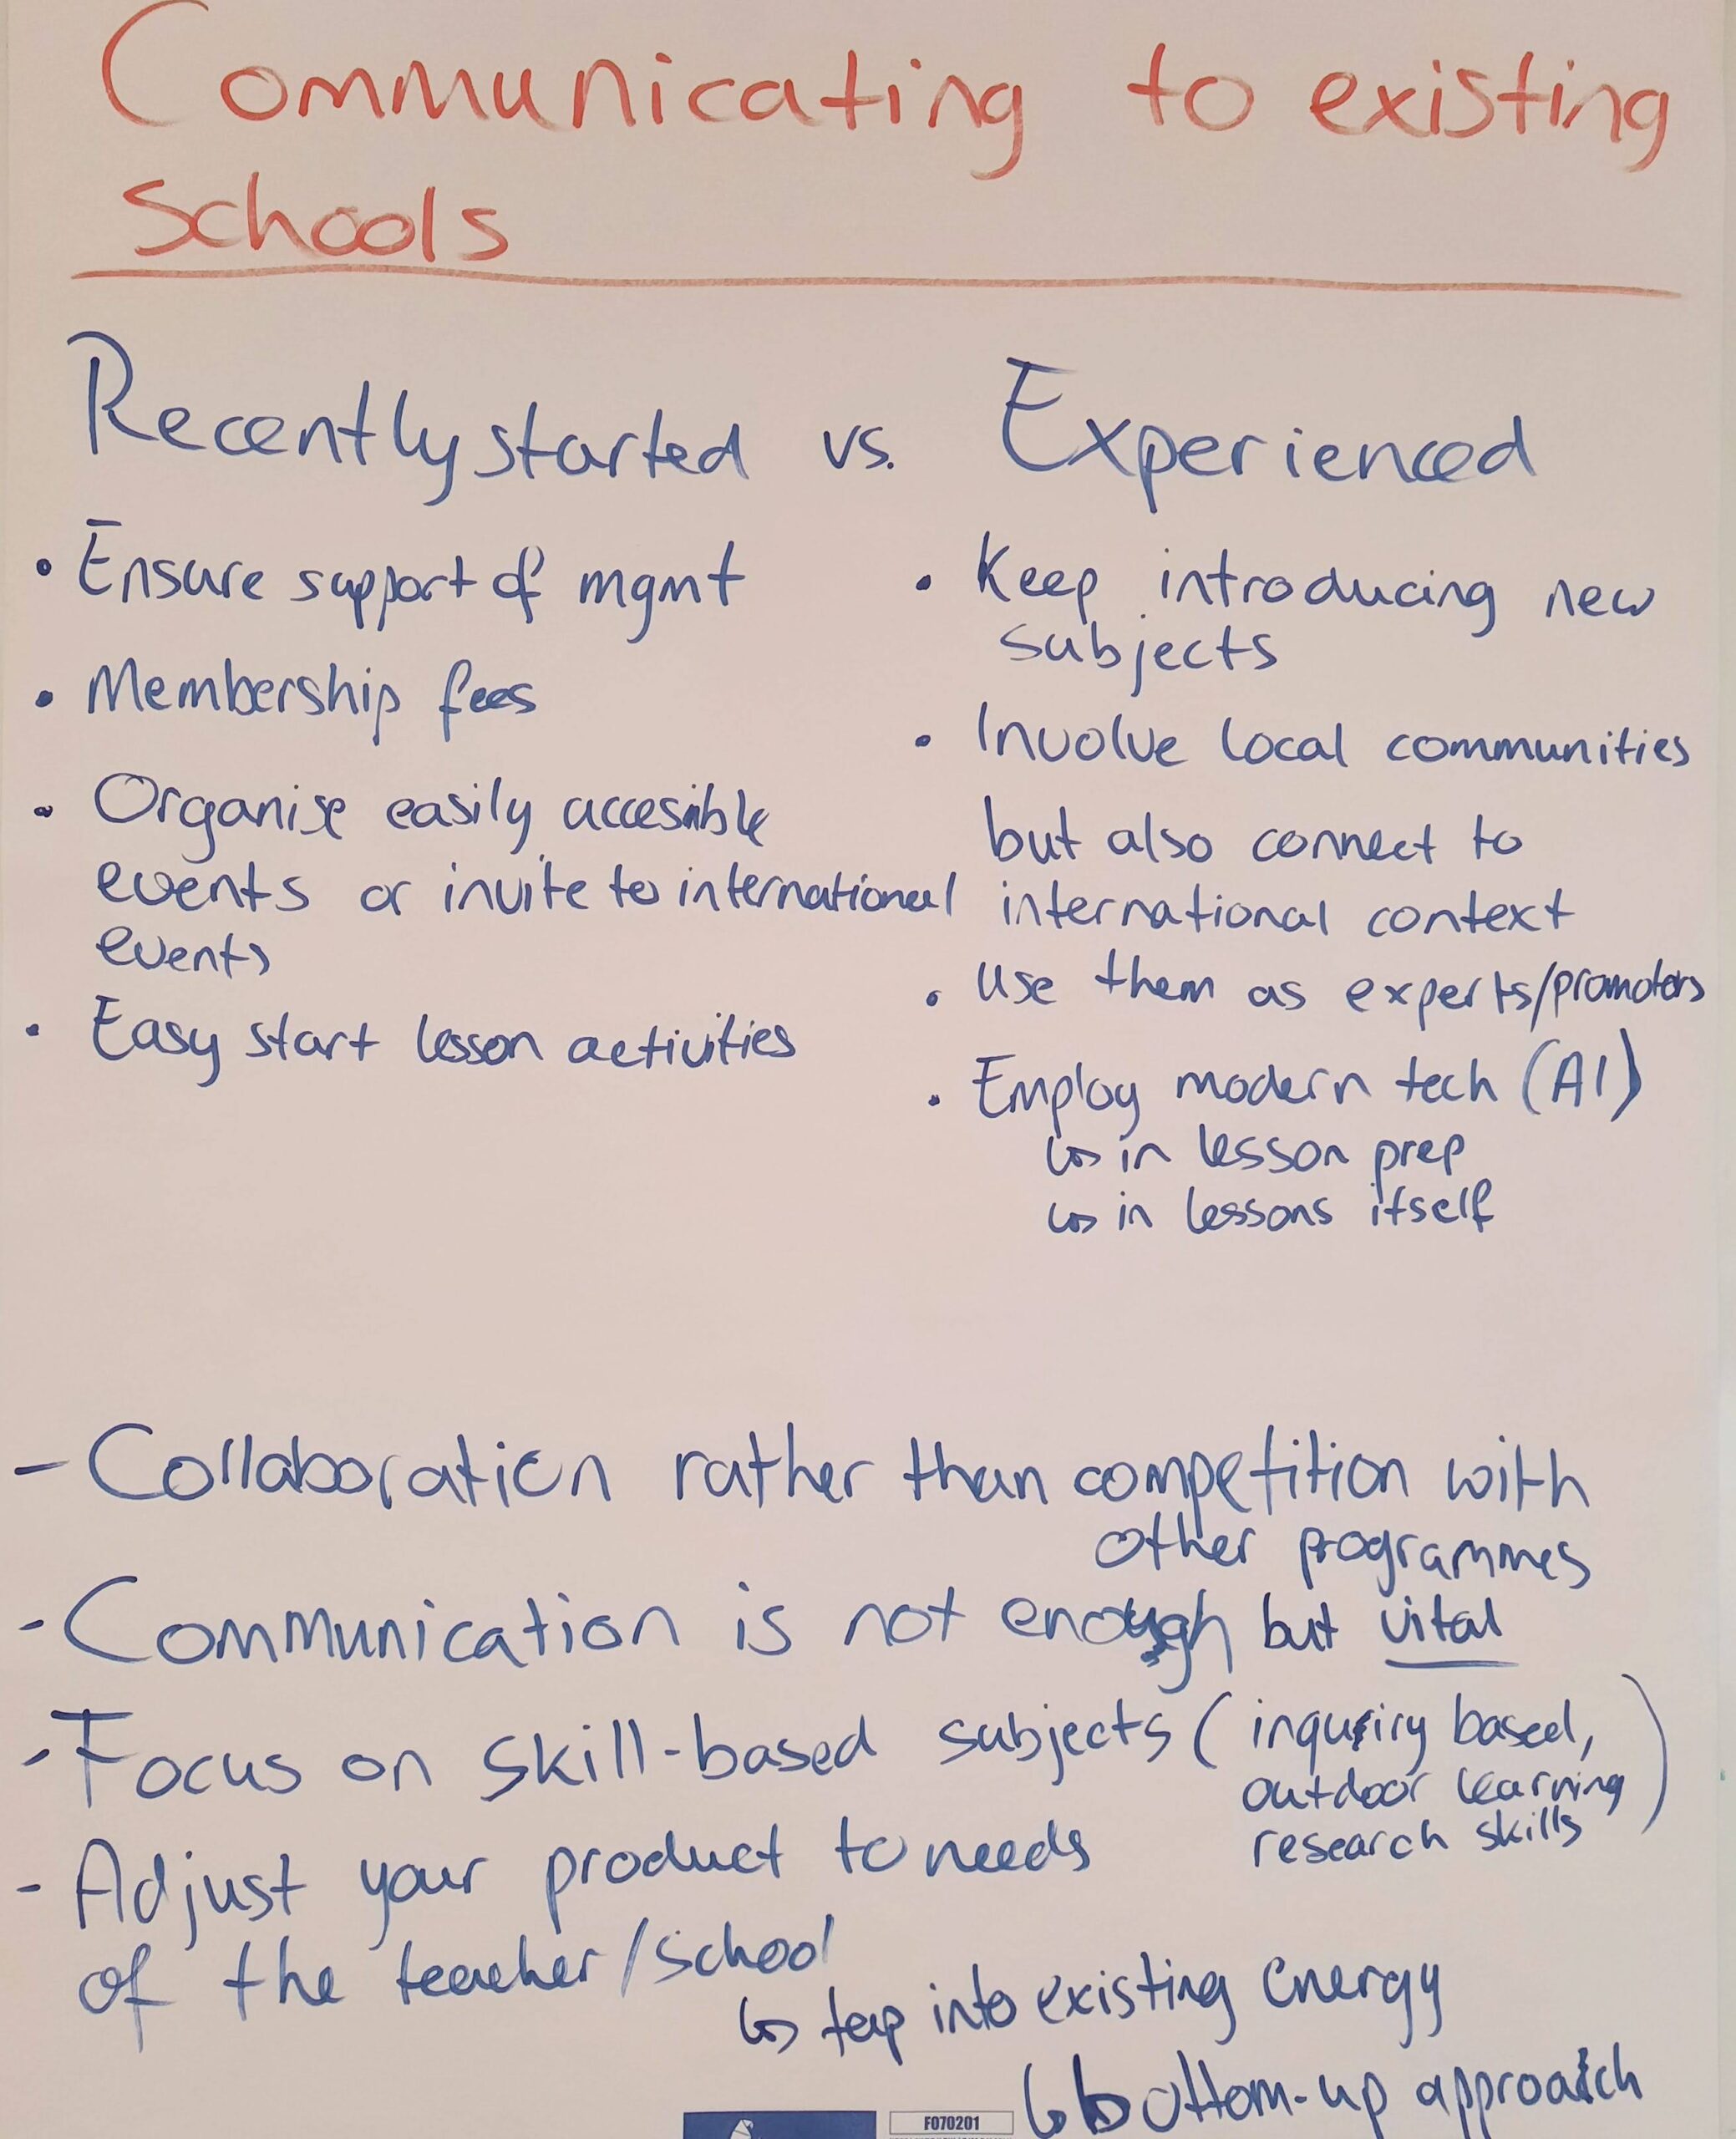 Communicating to existing
schools
Recently started vs. Experienced
• Ensure support of mgmt
• Membership fees
• Organise easily accesible
events or invite to international
events
• Easy start lesson activities
• Keep introducing new
subjects
• Involve local communities
but also connect to
international context
• Use them as experts/promoters
• Employ modern tech (AI)
↳ in lesson prep
↳ in lessons itself
- Collaboration rather than competition with
other programmes
- Communication is not enough but vital
- Focus on skill-based subjects (inquiry based,
outdoor learning
research skills)
- Adjust your product to needs
of the teacher/school
↳ tap into existing energy
↳ bottom-up approach
F070201